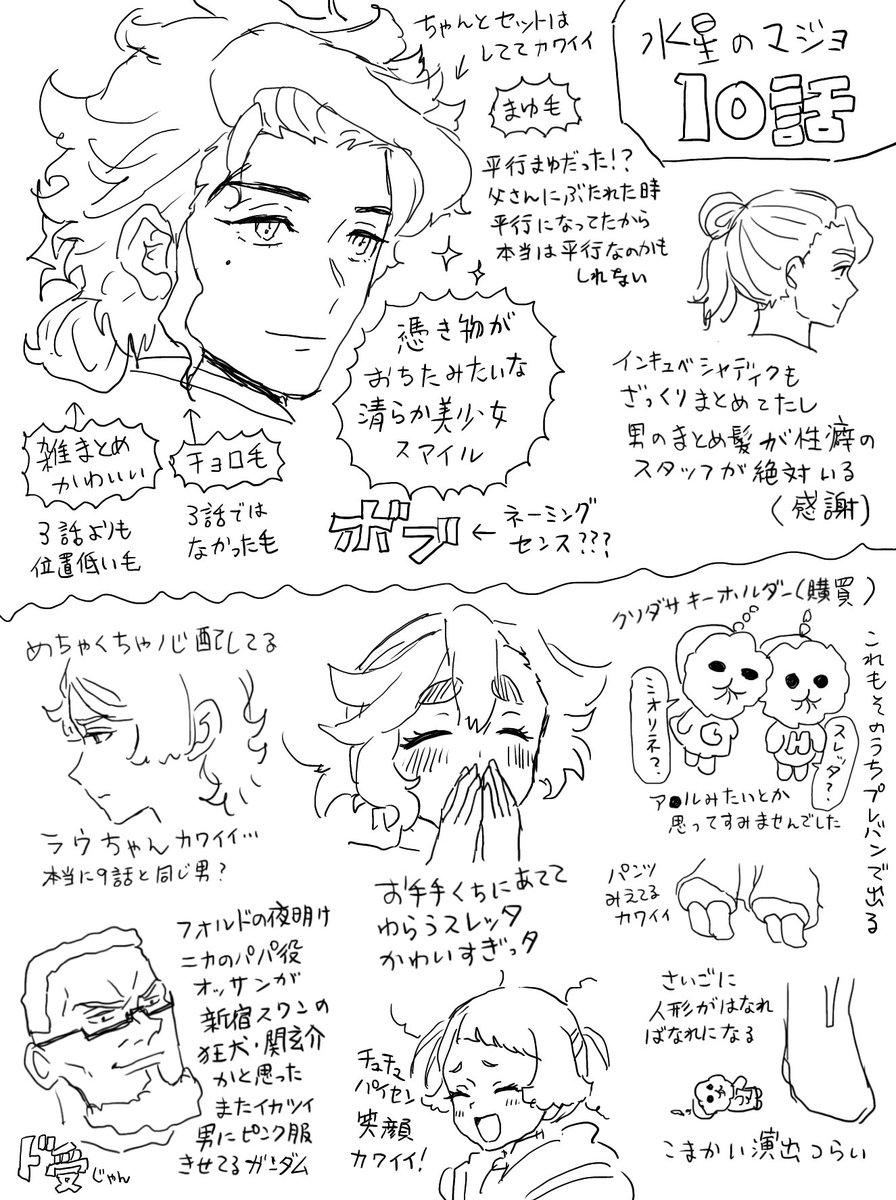 水星のマジョ
10話
ちゃんとセットは
しててカワイイ
まゆ毛
平行まゆだった!?
父さんにぶたれた時
平行になってたから
本当は平行なのかも
しれない
憑き物が
おちたみたいな
清らか美少女
スマイル
インキュベシャディクも
ざっくりまとめてたし
男のまとめ髪が性癖の
スタッフが絶対いる
(感謝)
雑まとめ
かわいい
3話よりも
位置低い毛
チョロ毛
3話では
なかった毛
ボブ
←ネーミング
センス???
めちゃくちゃ心配してる
ラウちゃんカワイイ…
本当に9話と同じ男?
お手手くちにあてて
わらうスレッタ
かわいすぎッタ
クソダサキーホルダー(購買)
ミオリネ?
スレッタ?
G
H
ア●ルみたいとか
思ってすみませんでした
これもそのうちプレバンで出る
パンツ
みえてる
カワイイ
フォルドの夜明け
ニカのパパ役
オッサンが
新宿スワンの
狂犬・関玄介
かと思った
またイカツイ
男にピンク服
きせてるガンダム
ド受じゃん
チュチュ
パイセン
笑顔
カワイイ!
さいごに
人形がはなれ
ばなれになる
こまかい演出つらい